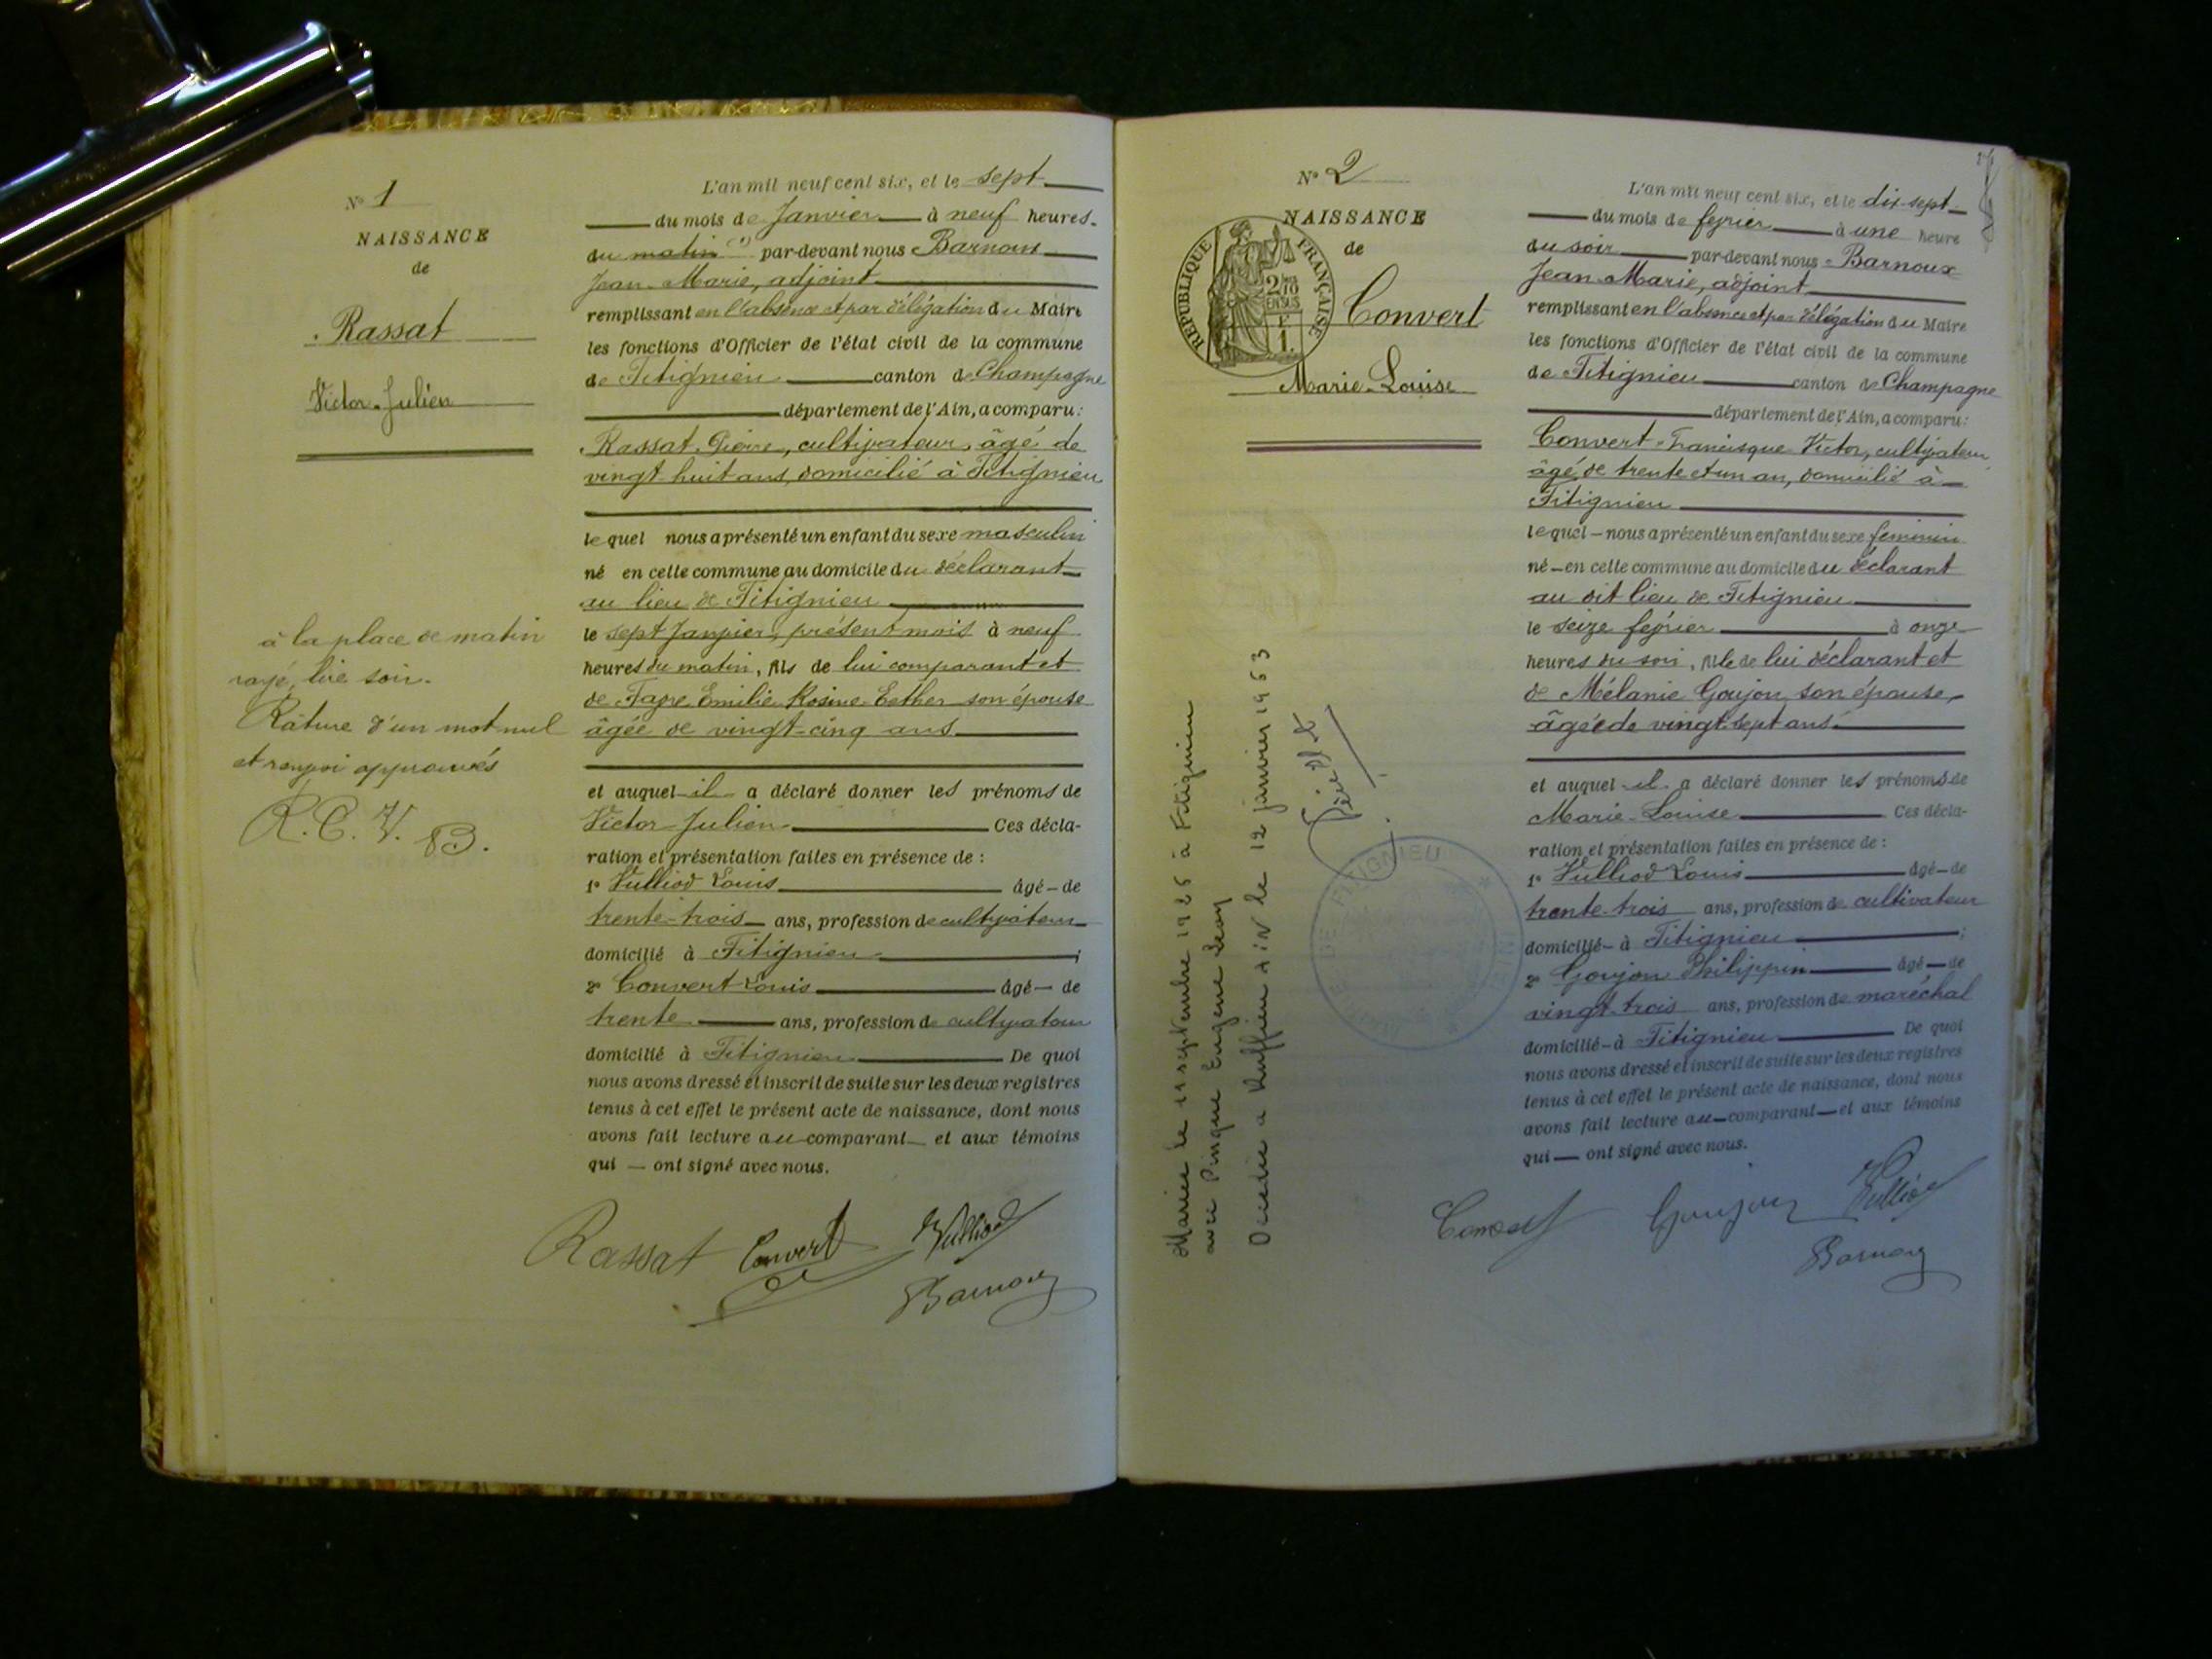 N° 1
NAISSANCE
de
Rassat
Victor-Julien
à la place de matin
rayé, lire soir.
Râture d'un mot nul
et renvoi approuvés
R. C. V. B.
L'an mil neuf cent six, et le sept
du mois de Janvier à neuf heures
du matin (1) par-devant nous Barnoux
Jean-Marie, adjoint
remplissant en l'absence et par délégation du Maire
les fonctions d'Officier de l'état civil de la commune
de Fitignieu canton de Champagne
département de l'Ain, a comparu :
Rassat Pierre, cultivateur, âgé de
vingt-huit ans, domicilié à Fitignieu
lequel nous a présenté un enfant du sexe masculin
né en cette commune au domicile du déclarant
au lieu de Fitignieu
le sept Janvier, présent mois à neuf
heures du matin, fils de lui comparant et
de Emilie Rosine Esther son épouse
âgée de vingt-cinq ans
et auquel il a déclaré donner les prénoms de
Victor-Julien Ces décla-
ration et présentation faites en présence de :
1° Vulliod Louis âgé de
trente-trois ans, profession de cultivateur
domicilié à Fitignieu ;
2° Convert Louis âgé de
trente ans, profession de cultivateur
domicilié à Fitignieu De quoi
nous avons dressé et inscrit de suite sur les deux registres
tenus à cet effet le présent acte de naissance, dont nous
avons fait lecture au comparant et aux témoins
qui ont signé avec nous.
Rassat Convert Vulliod
Barnoux
N° 2
NAISSANCE
de
RÉPUBLIQUE FRANÇAISE
2/10
EN SUS
1.
Convert
Marie-Louise
Mariée le septembre 1926 à Fitignieu
avec Pingue Eugène Léon
Décédée à Ruffieu AIN le 12 janvier 1963
MAIRIE DE FITIGNIEU
L'an mil neuf cent six, et le dix-sept
du mois de février à une heure
du soir par-devant nous Barnoux
Jean-Marie, adjoint
remplissant en l'absence et par délégation du Maire
les fonctions d'Officier de l'état civil de la commune
de Fitignieu canton de Champagne
département de l'Ain, a comparu :
Convert Francisque Victor, cultivateur
âgé de trente et un an, domicilié à
Fitignieu
lequel nous a présenté un enfant du sexe feminin
né en cette commune au domicile du déclarant
au dit lieu de Fitignieu
le seize février à onze
heures du soir, fille de lui déclarant et
de Mélanie Goujon, son épouse,
âgée de vingt-sept ans
et auquel il a déclaré donner les prénoms de
Marie-Louise Ces décla-
ration et présentation faites en présence de :
1° Vulliod Louis âgé de
trente-trois ans, profession de cultivateur
domicilié à Fitignieu ;
2° Goujon Philippin âgé de
vingt-trois ans, profession de maréchal
domicilié à Fitignieu De quoi
nous avons dressé et inscrit de suite sur les deux registres
tenus à cet effet le présent acte de naissance, dont nous
avons fait lecture au comparant et aux témoins
qui ont signé avec nous.
Convert Goujon Vulliod
Barnoux